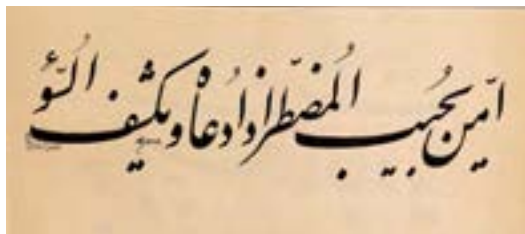 امّن یجُیب المُضطّر اذا دُعاهُ و یکشِف السُّوُ